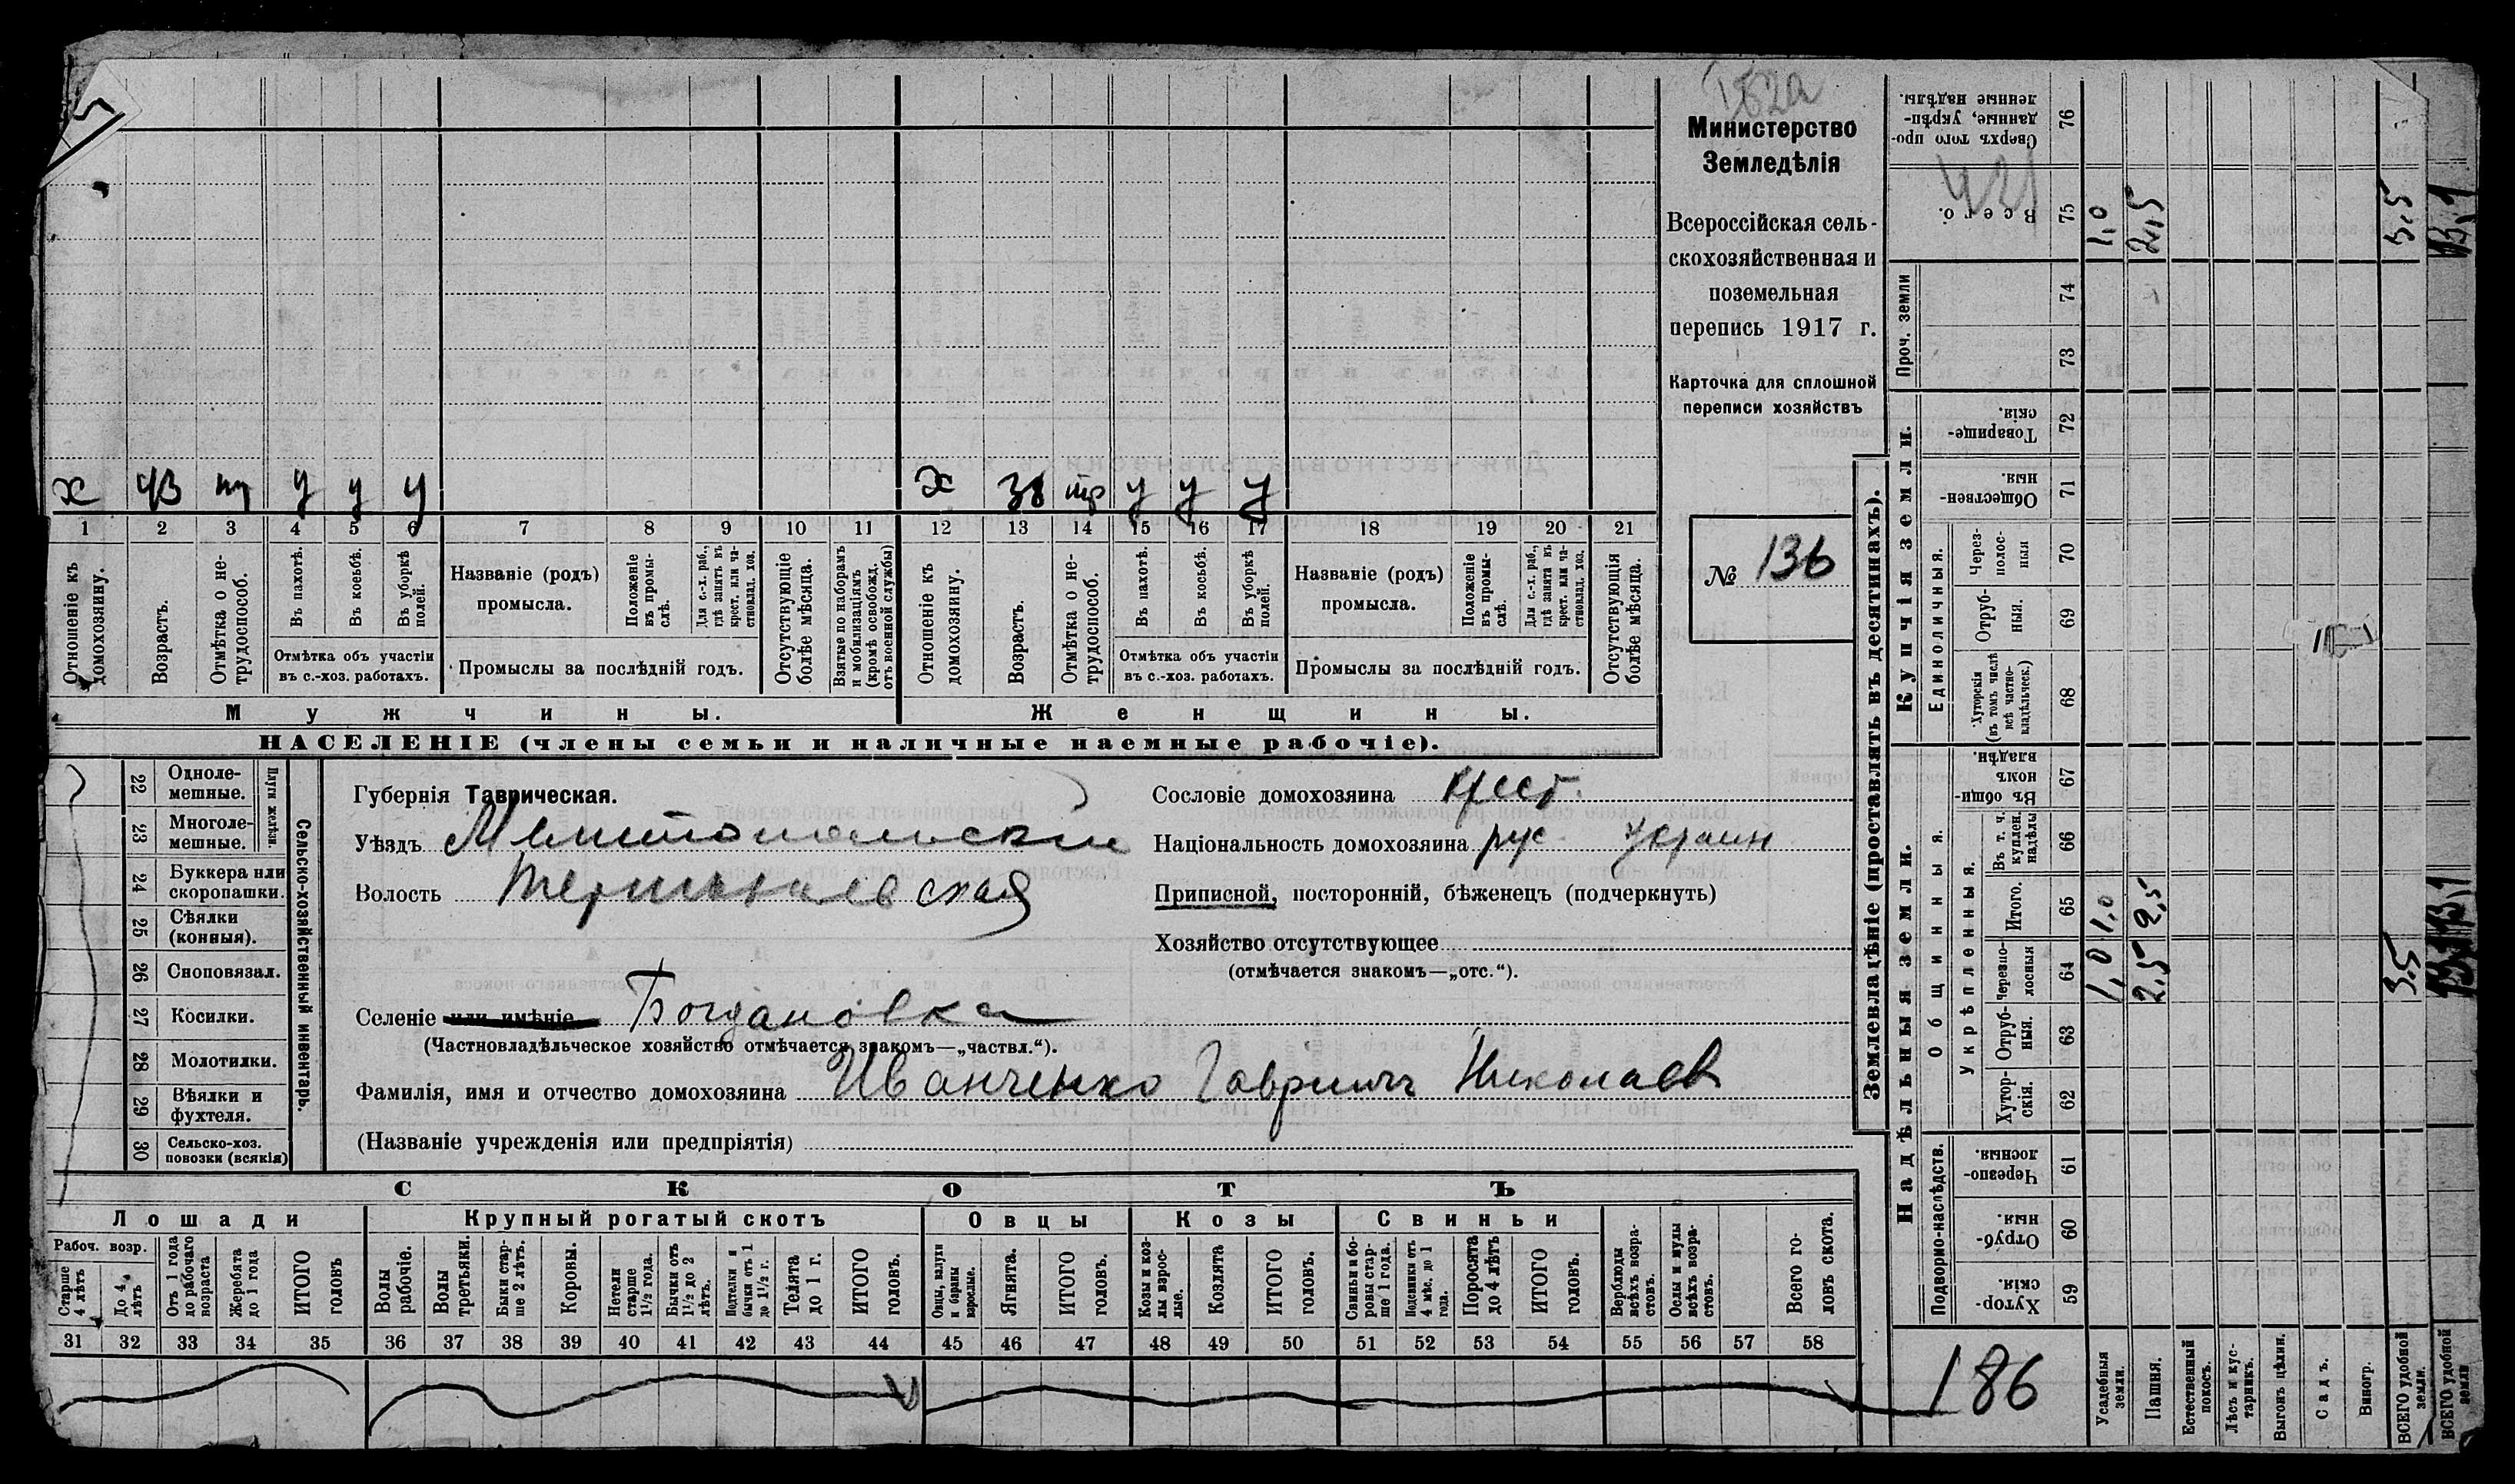 Министерство
Земледѣлія
Всероссійская сель-
скохозяйственная и
поземельная
перепись 1917 г.
Карточка для сплошной
переписи хозяйствъ
№ 136
х 43 у у у
х 38 у у у
1 2 3 4 5 6 7 8 9 10 11 12 13 14 15 16 17 18 19 20 21
Отношеніе къ домохозяину.
Возрастъ.
Отмѣтка о не-трудоспособ.
Въ пахотѣ.
Въ косьбѣ.
Въ уборкѣ полей.
Отмѣтка объ участіи
въ с.-хоз. работахъ.
Названіе (родъ)
промысла.
Положеніе въ промы-слѣ.
Для с.-х. раб., гдѣ занятъ въ крест. или ча-стновлад. хоз.
Промыслы за послѣдній годъ.
Отсутствующіе болѣе мѣсяца.
Взятые по наборамъ и мобилизаціямъ (кромѣ освобожд. отъ военной службы)
Отношеніе къ домохозяину.
Возрастъ.
Отмѣтка о не-трудоспособ.
Въ пахотѣ.
Въ косьбѣ.
Въ уборкѣ полей.
Отмѣтка объ участіи
въ с.-хоз. работахъ.
Названіе (родъ)
промысла.
Положеніе въ промы-слѣ.
Для с.-х. раб., гдѣ занята въ крест. или ча-стновлад. хоз.
Промыслы за послѣдній годъ.
Отсутствующія болѣе мѣсяца.
Мужчины.
Женщины.
НАСЕЛЕНІЕ (члены семьи и наличные наемные рабочіе).
Сельско-хозяйственный инвентарь.
Плуги желѣзн.
22 Одноле-мешные.
23 Многоле-мешные.
24 Буккера или скоропашки.
25 Сѣялки (конныя).
26 Сноповязал.
27 Косилки.
28 Молотилки.
29 Вѣялки и фухтеля.
30 Сельско-хоз. повозки (всякія)
Губернія Таврическая.
Уѣздъ Мелитопольскій
Волость
Селеніе или имѣніе Богдановка
(Частновладѣльческое хозяйство отмѣчается знакомъ—„частвл.“).
Фамилія, имя и отчество домохозяина Иванченко Гаврiилъ Николаев
(Названіе учрежденія или предпріятія)
Сословіе домохозяина крест.
Національность домохозяина рус. украин
Приписной, посторонній, бѣженецъ (подчеркнуть)
Хозяйство отсутствующее
(отмѣчается знакомъ—„отс.“).
СКОТЪ
Лошади
Крупный рогатый скотъ
Овцы
Козы
Свиньи
Рабоч. возр.
Старше 4 лѣтъ
До 4 лѣтъ
Отъ 1 года до рабочаго возраста
Жеребята до 1 года
ИТОГО головъ
Волы рабочіе.
Волы третьяки.
Быки стар-ше 2 лѣтъ.
Коровы.
Нетели старше 1½ года.
Бычки отъ 1½ до 2 лѣтъ.
Подтелки и бычки отъ 1 до 1½ г.
Телята до 1 г.
ИТОГО головъ.
Овцы, валухи и бараны взрослые.
Ягнята.
ИТОГО головъ.
Козы и коз-лы взрос-лые.
Козлята
ИТОГО головъ.
Свиньи и бо-ровы стар-ше 1 года.
Подсвинки отъ 4 мѣс. до 1 года.
Поросята до 4 лѣтъ
ИТОГО головъ.
Верблюды всѣхъ возра-стовъ.
Ослы и мулы всѣхъ возра-стовъ.
Всего го-ловъ скота.
31 32 33 34 35 36 37 38 39 40 41 42 43 44 45 46 47 48 49 50 51 52 53 54 55 56 57 58
Землевладѣніе (проставлять въ десятинахъ).
Надѣльныя земли.
Купчія земли.
Проч. земли
Подворно-наслѣдств.
Общинныя.
Укрѣпленныя.
Единоличныя.
Хутор-скія. 59
Отруб-ныя. 60
Черезпо-лосныя. 61
Хутор-скія. 62
Отруб-ныя. 63
Черезпо-лосныя 64
Итого. 65
Въ т. ч. куплен. надѣлы 66
Въ общин-номъ владѣн. 67
Хуторскія (въ томъ числѣ всѣ частно-владѣльческ.) 68
Отруб-ныя. 69
Через-полос-ныя 70
Обществен-ныя. 71
Товарище-скія. 72
73
74
Всего. 75
Сверхъ того про-данные, укрѣп-ленные надѣлы. 76
Усадебныя земли. 1,0 1,0 1,0
Пашня. 2,5 2,5 2,5
Естественный покосъ.
Лѣсъ и кус-тарникъ.
Выгонъ цѣлин.
Садъ.
Виногр.
ВСЕГО удобной земли. 3,5 3,5
ВСЕГО удобной земли
186